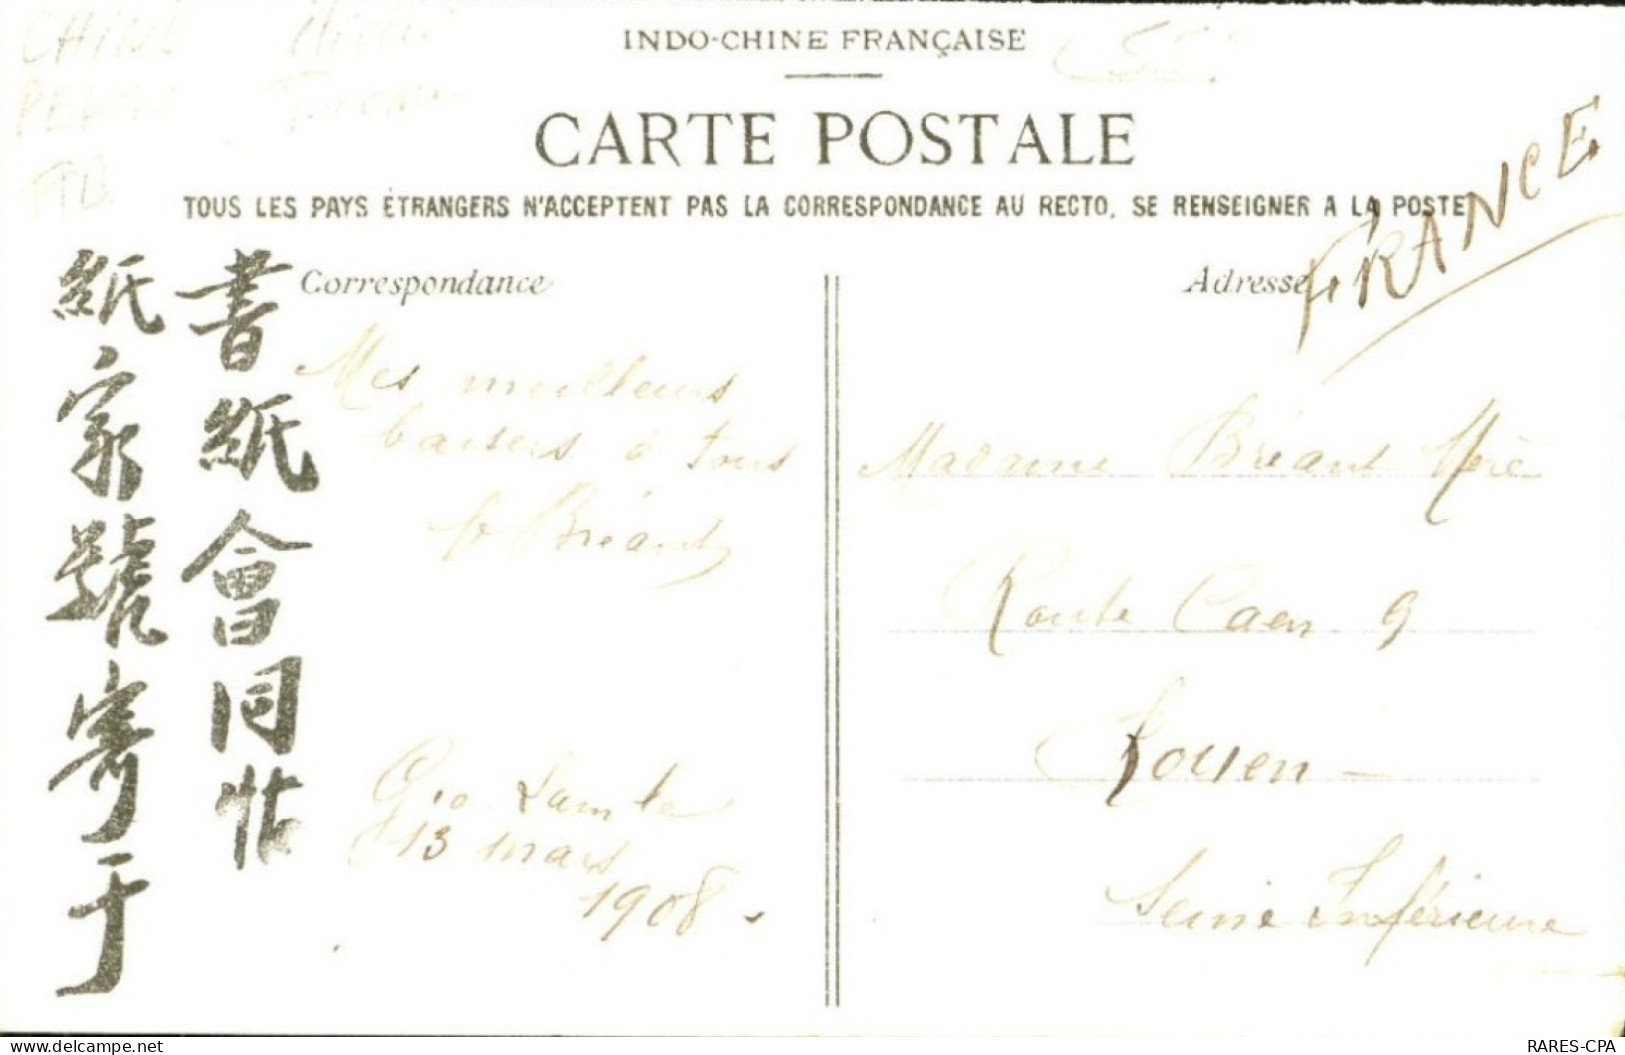 INDO-CHINE FRANÇAISE
CARTE POSTALE
TOUS LES PAYS ÉTRANGERS N'ACCEPTENT PAS LA CORRESPONDANCE AU RECTO, SE RENSEIGNER A LA POSTE
FRANCE
Correspondance
書紙會同帖
紙家號寄于
Mes meilleurs
baisers à tous
Bréant
13 mars
1908
Adresse
Madame Bréant Mère
Route Caen 9
Rouen
Seine Inférieure
RARES-CPA